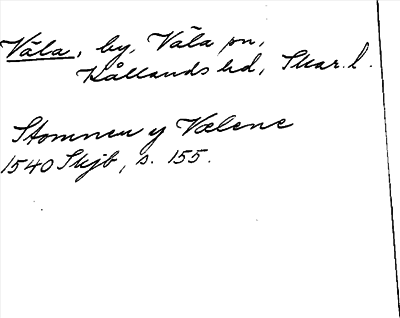 Väla, by, Väla sn,
Kållands hd, Skar. l.
Stomnen y Vælene
1540 Skjb, s. 155.